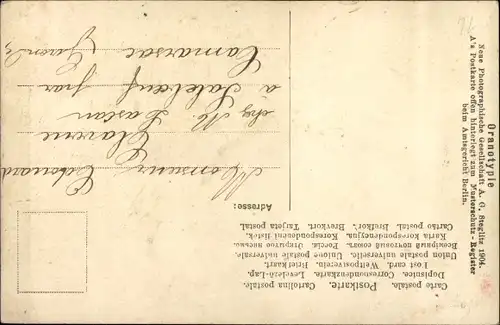 Carte postale. Postkarte. Cartolina postale.
Dopisnice. Correspondenzkarte. Levelező-Lap.
Post card. Weltpostverein. Briefkaart.
Union postale universelle. Unione postale universale
Всемірный почтовый союзъ. Россія. Открытое письмо.
Karta korespondencyjna. Korespondenční lístek.
Cartão postal. Brefkort. Tarjeta postal.
Adresse:
Monsieur Edouard
Elarene
chez M. Castan
a Salebœuf par
Camarsac Gironde
Oranotypie
Neue Photographische Gesellschaft A. G. Steglitz 1904.
A's Postkarte offen hinterlegt zum Musterschutz-Register
beim Amtsgericht Berlin.